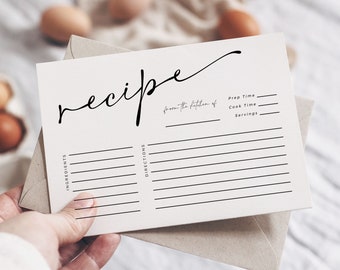 recipe
from the kitchen of
Prep Time
Cook Time
Servings
INGREDIENTS
DIRECTIONS